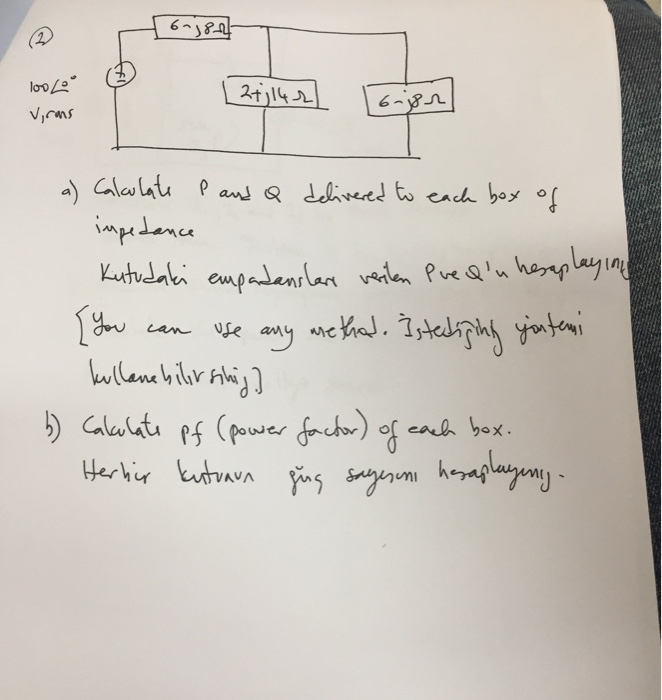 2
6-j8Ω
100∠0°
V,rms
2+j14Ω
6-j8Ω
a) Calculate P and Q delivered to each box of
impedance
Kutudaki empedansları verilen P ve Q'u hesaplayınız
[You can use any method. İstediğiniz yöntemi
kullanabilirsiniz]
b) Calculate pf (power factor) of each box.
Herbir kutunun güç sayısını hesaplayınız.